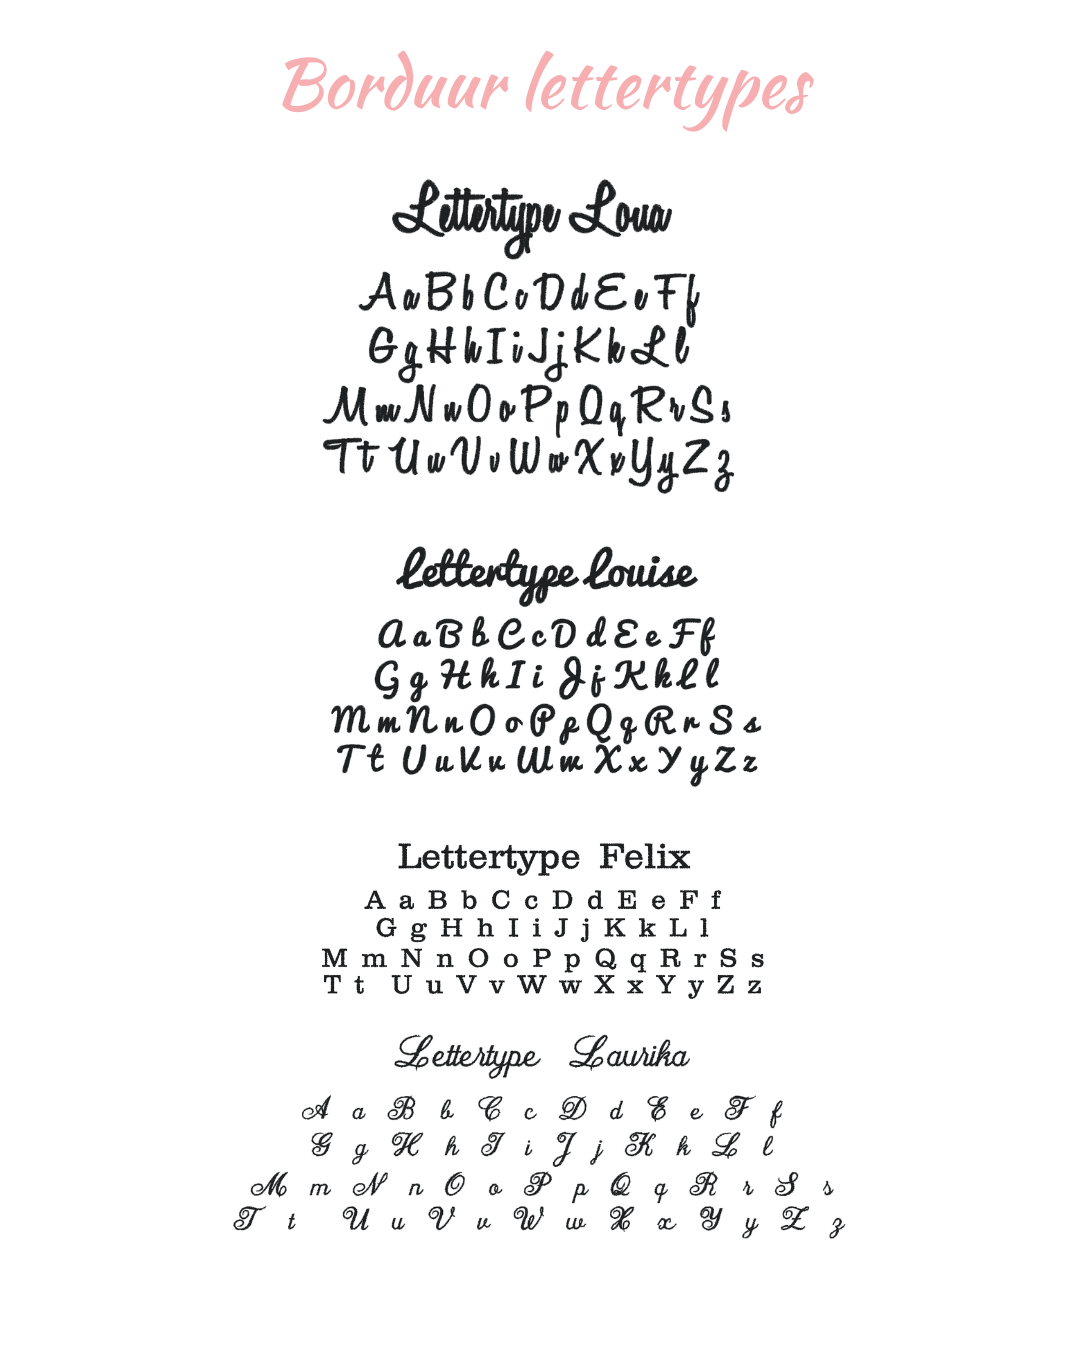 Borduur lettertypes
Lettertype Loua
A a B b C c D d E e F f
G g H h I i J j K k L l
M m N n O o P p Q q R r S s
T t U u V v W w X x Y y Z z
Lettertype Louise
A a B b C c D d E e F f
G g H h I i J j K k L l
M m N n O o P p Q q R r S s
T t U u V v W w X x Y y Z z
Lettertype Felix
A a B b C c D d E e F f
G g H h I i J j K k L l
M m N n O o P p Q q R r S s
T t U u V v W w X x Y y Z z
Lettertype Laurika
A a B b C c D d E e F f
G g H h I i J j K k L l
M m N n O o P p Q q R r S s
T t U u V v W w X x Y y Z z